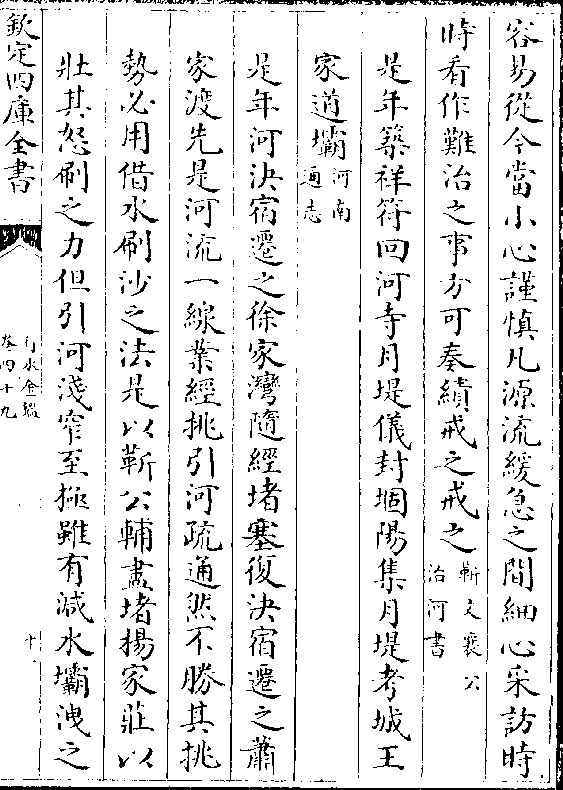 容易從今當小心謹慎凡源流緩急之間細心采訪時
時看作難治之事方可奏績戒之戒之靳文襄公治河書
是年築祥符回河寺月堤儀封堌陽集月堤考城王
家道壩河南通志
是年河決宿遷之徐家灣隨經堵塞復決宿遷之蕭
家渡先是河流一線業經挑引河疏通然不勝其挑
勢必用借水刷沙之法是以靳公輔盡堵揚家莊以
壯其怒刷之力但引河淺窄至極雖有減水壩洩之
欽定四庫全書
行水金鑑
卷四十九